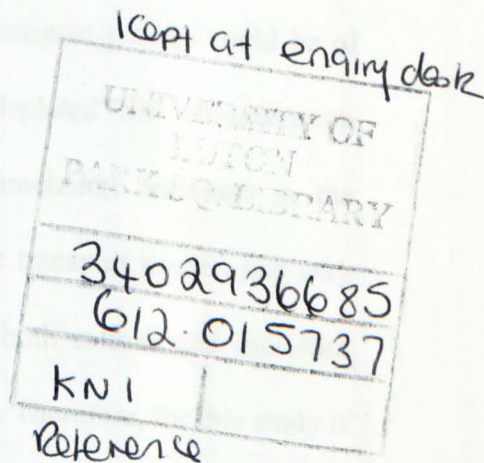 Kept at enqiry desk
UNIVERSITY OF
LUTON
PARK SQ LIBRARY
3402936685
612.015737
KNI
Reference